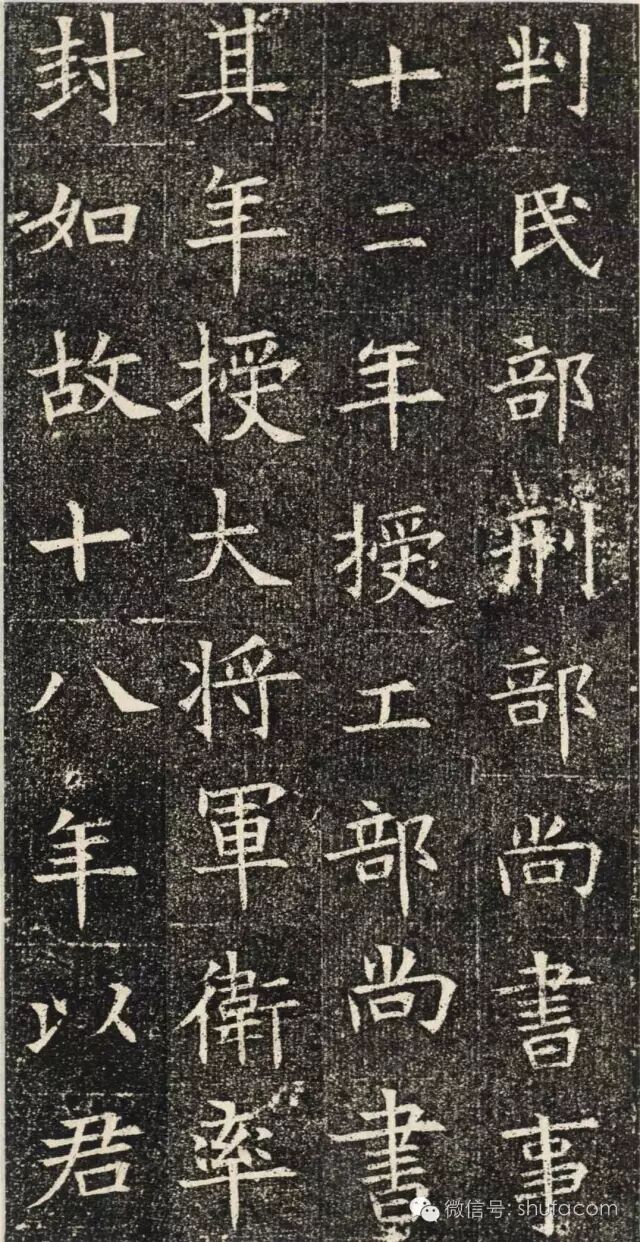 判民部刑部尚書事
十二年授工部尚書
其年授大将軍衛率
封如故十八年以君
微信号: shufacom